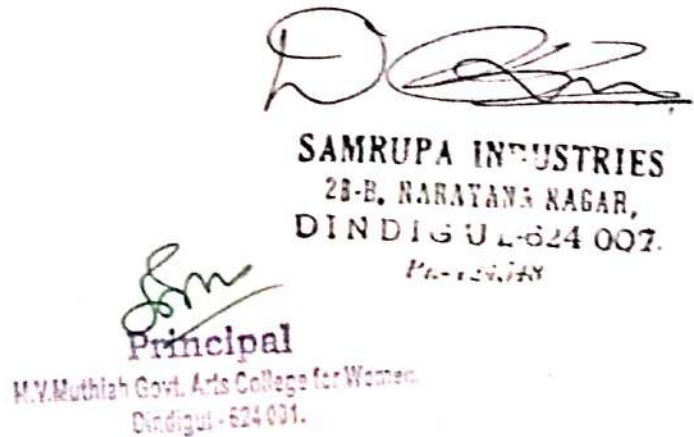 SAMRUPA INDUSTRIES
28-B, NARAYANA NAGAR,
DINDIGUL-624 007.
Principal
M.V.Muthiah Govt. Arts College for Women,
Dindigul - 624 001.